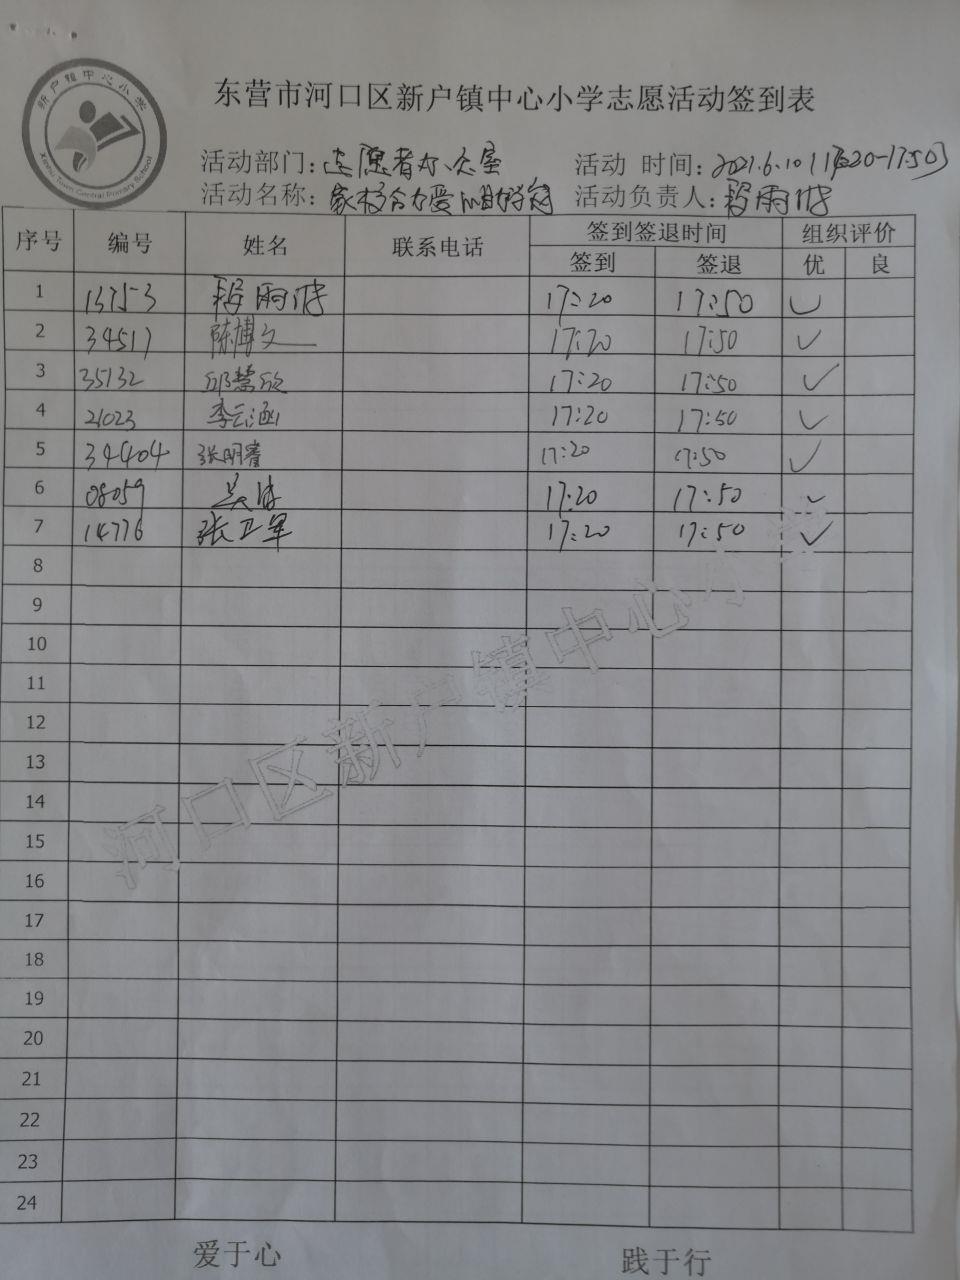 新户镇中心小学
Xinhu Town Central Primary School
东营市河口区新户镇中心小学志愿活动签到表
活动部门：志愿者办公室 活动 时间：2021.6.10（17:20-17:50）
活动名称：家校合力爱 活动负责人：雨
序号 编号 姓名 联系电话 签到签退时间 组织评价
签到 签退 优 良
1 13753 雨 17:20 17:50 ✓
2 34517 陈博文 17:20 17:50 ✓
3 35132 邱慧欣 17:20 17:50 ✓
4 21023 李云涵 17:20 17:50 ✓
5 34404 张明睿 17:20 17:50 ✓
6 08059 吴 17:20 17:50 ✓
7 14776 张卫军 17:20 17:50 ✓
8
9
10
11
12
13
14
15
16
17
18
19
20
21
22
23
24
河口区新户镇中心小学
爱于心 践于行